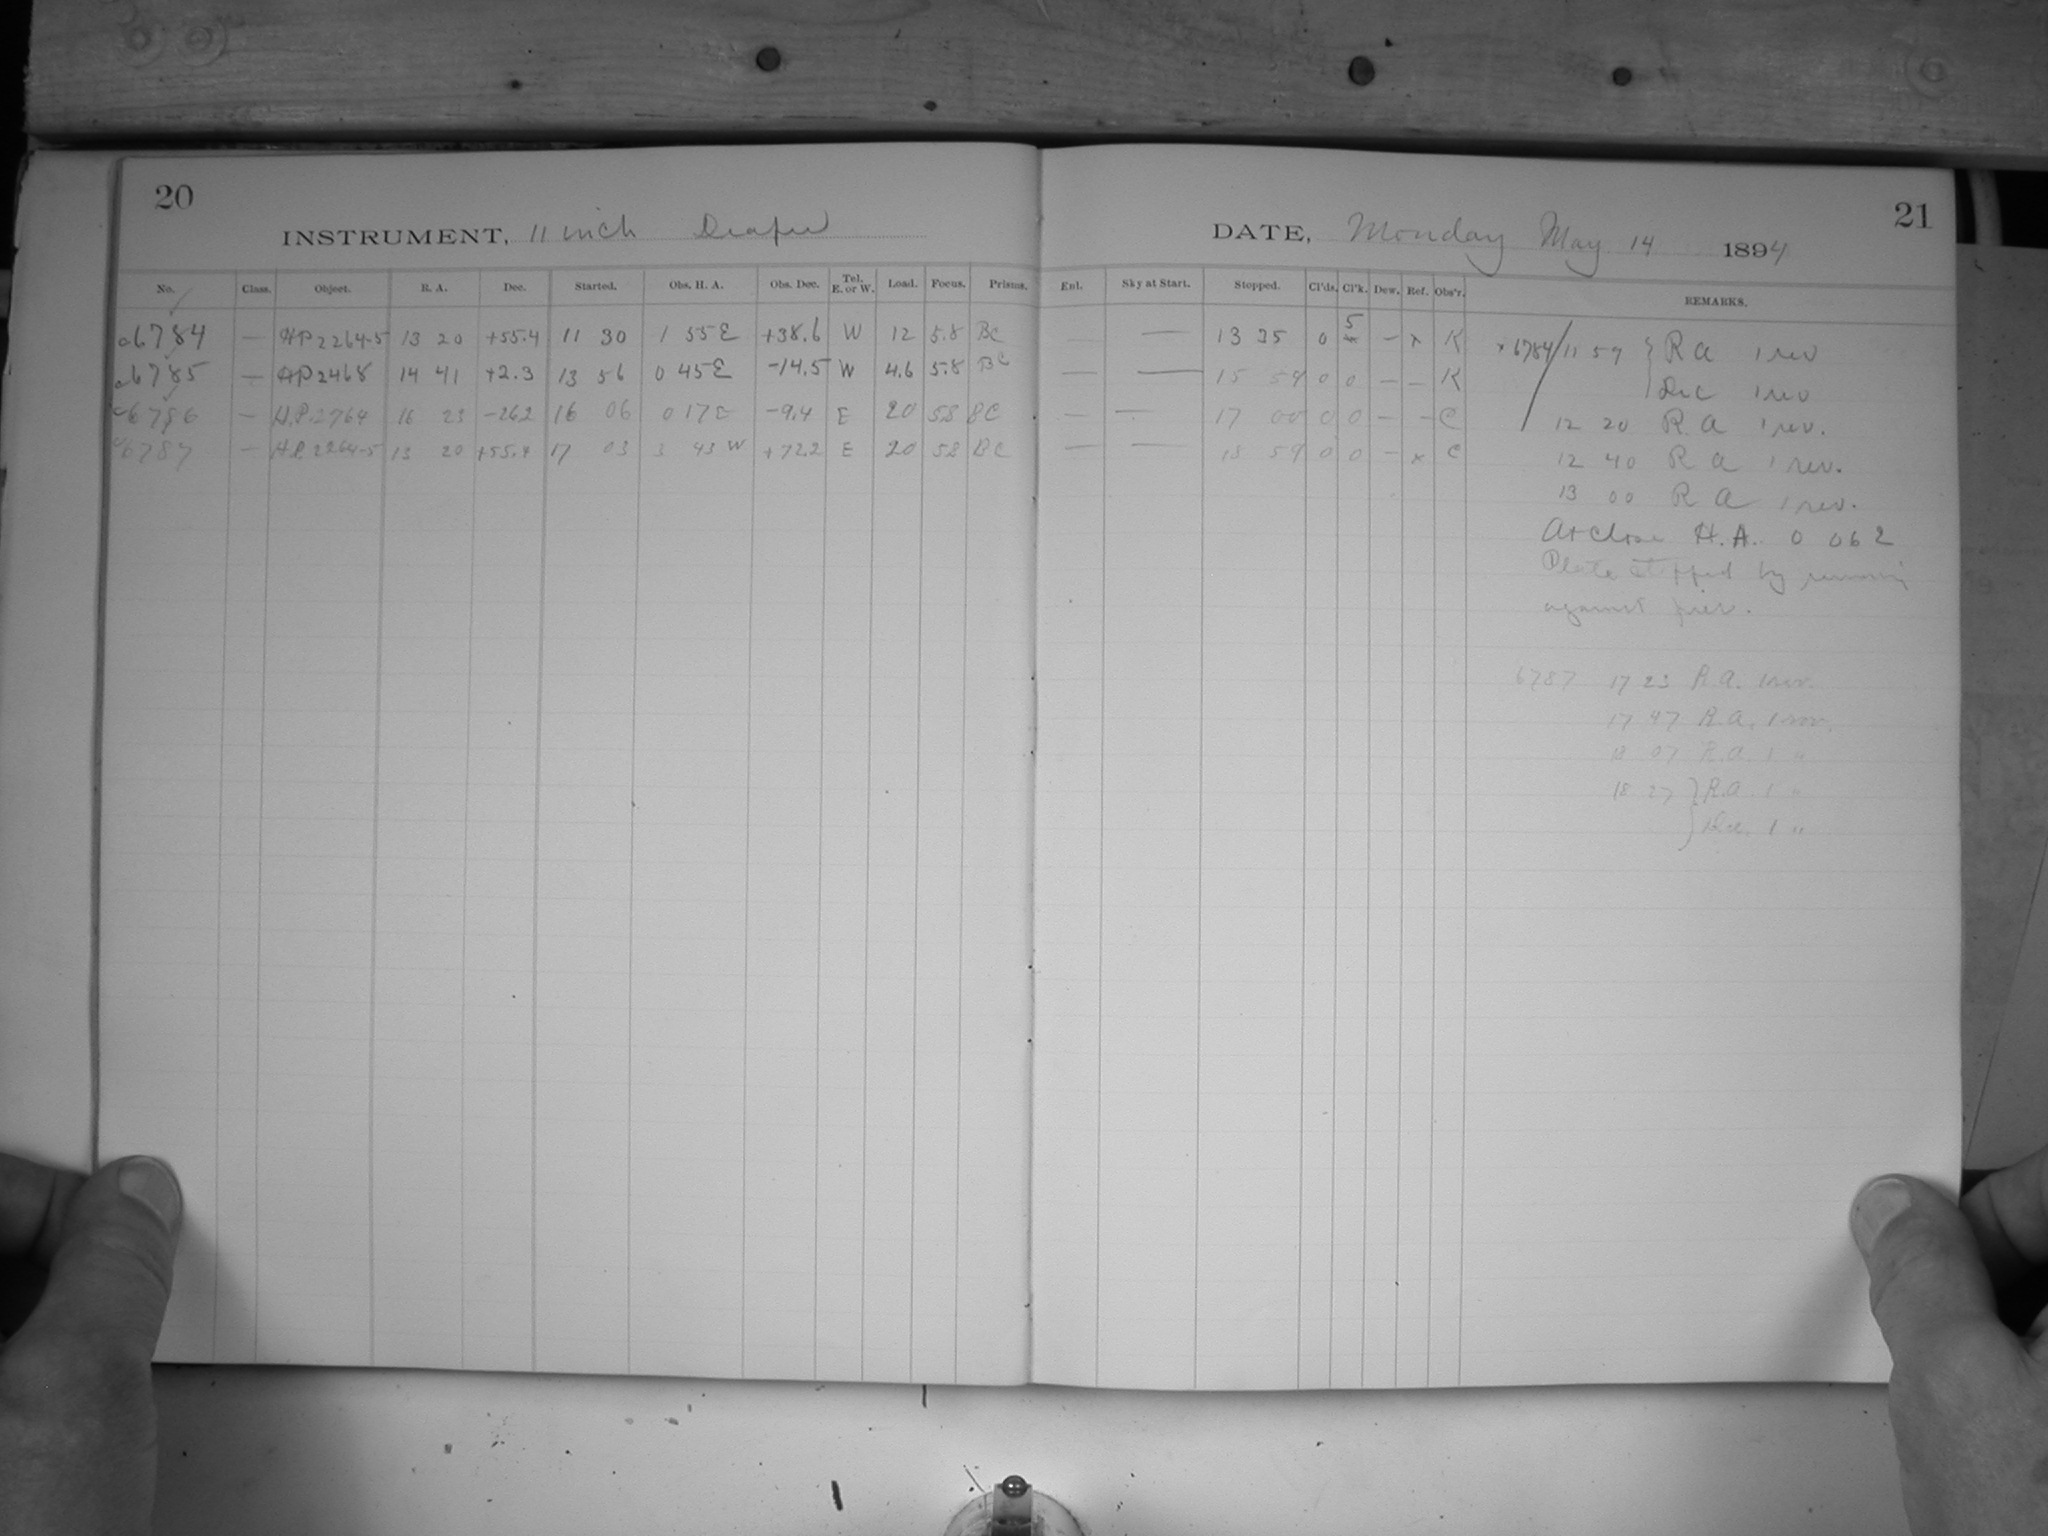 20
21
INSTRUMENT, 11 inch Draper
DATE, Monday May 14 1894
No. Class. Object. R. A. Dec. Started. Obs. H. A. Obs. Dec. Tel. E. or W. Load. Focus. Prisms. Enl. Sky at Start. Stopped. Cl'ds. Cl'k. Dew. Ref. Obs'r. REMARKS.
a6784 — AP2264-5 13 20 +55.4 11 30 1 55E +38.6 W 12 5.8 BC — — 13 35 0 5 — x K
a6785 — AP2468 14 41 +2.3 13 56 0 45E -14.5 W 4.6 5.8 BC — — 15 59 0 0 — — K
a6786 — A.P. 2764 16 23 -26.2 16 06 0 17E -9.4 E 20 5.8 BC — — 17 00 0 0 — — C
a6787 — A.P. 2264-5 13 20 +55.4 17 03 3 43 W +72.2 E 20 5.8 BC — — 18 59 0 0 — x C
x 6784/ 11 59 } R A 1 rev
Dec 1 rev
12 20 R A 1 rev.
12 40 R A 1 rev.
13 00 R A 1 rev.
At close H.A. 0 06 2
Plate stopped by running
against pier.
6787 17 23 R.A. 1 rev.
17 47 R.A. 1 rev.
18 07 R.A. 1 "
18 27 } R.A. 1 "
} Dec. 1 "